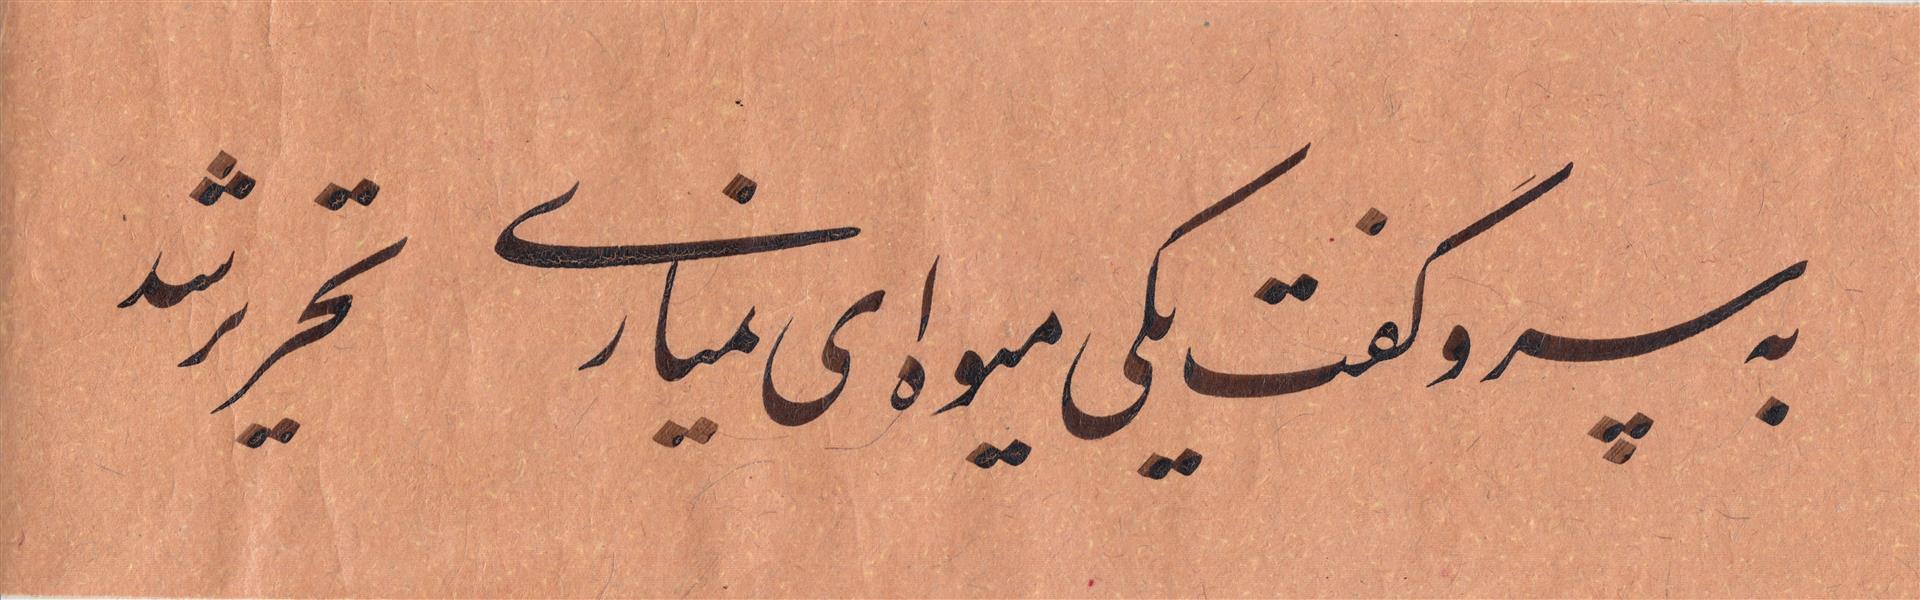 به سرو گفت یکی میوه ای نمیاری تحریر شد